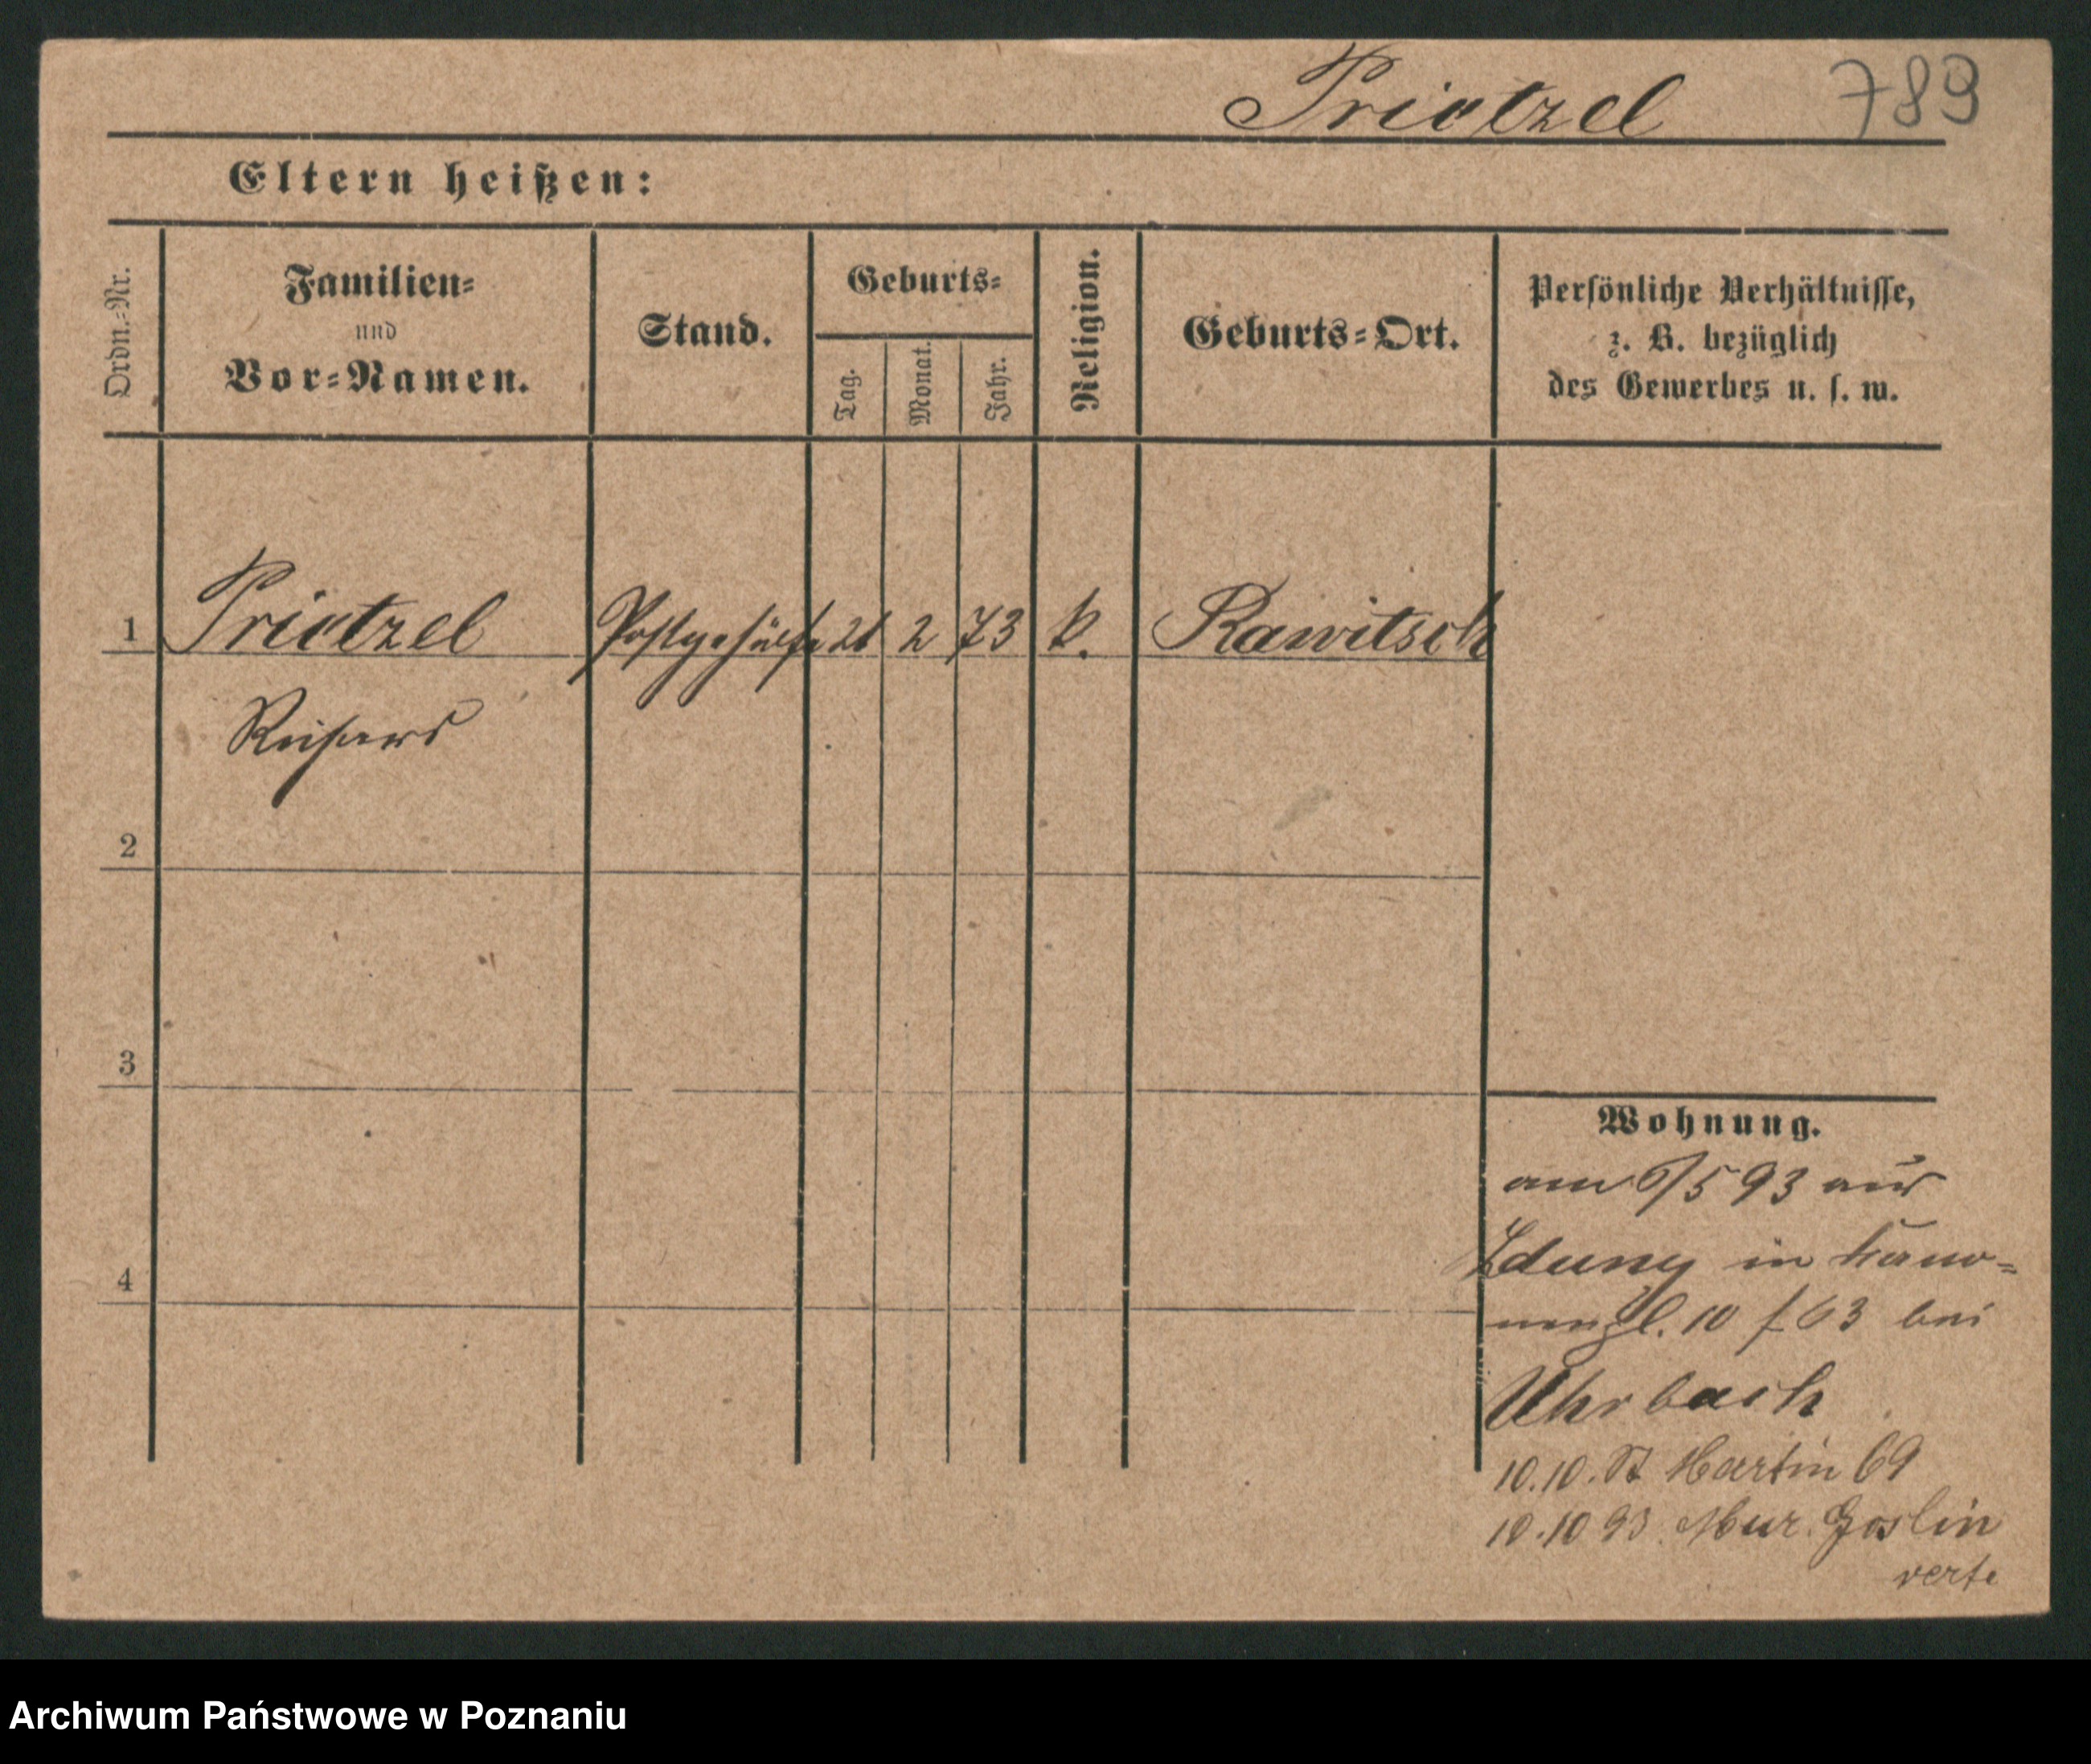 Prietzel 789
Eltern heißen:
Ordn.-Nr.
Familien-
und
Vor-Namen.
Stand.
Geburts-
Tag.
Monat.
Jahr.
Religion.
Geburts-Ort.
Persönliche Verhältnisse,
z. B. bezüglich
des Gewerbes u. s. w.
1 Prietzel Postgehülfe 21 2 73 k. Rawitsch
Richard
2
3
4
Wohnung.
am 6/5 93 aus
Zduny in
10 63 bei
Uhrbach
10.10. St Martin 69
19.10 93. Mur. Goslin
verte
Archiwum Państwowe w Poznaniu